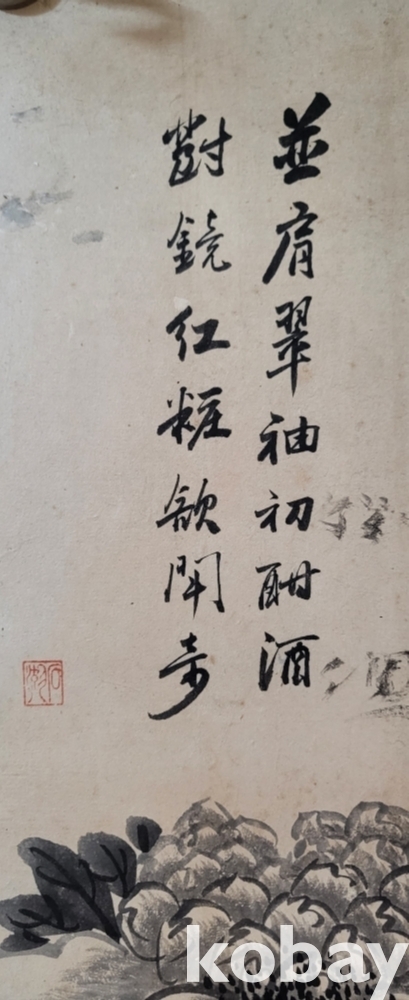 並肩翠袖初酣酒
對鏡紅粧欲鬥奇
kobay